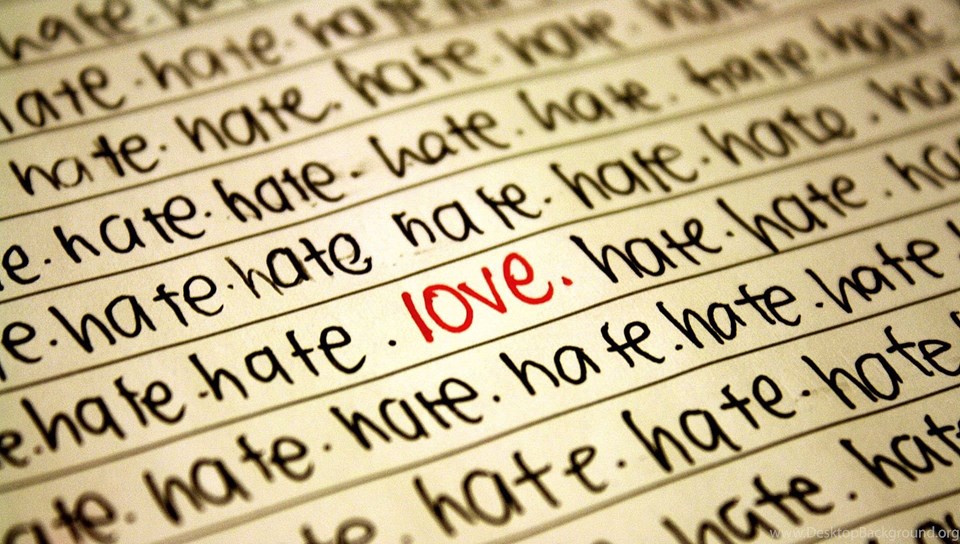 hate.
ate. hate. hate
hate. hate. hate. hate. hate
e. hate. hate. hate. hate. hate. hate
e. hate. hate hate. hate. hate. hat
e. hate. hate. love. hate. hate. ha
ate. hate. hate. hate. hate. hate
te. hate. hate. hate
hate. hate
www.DesktopBackground.org